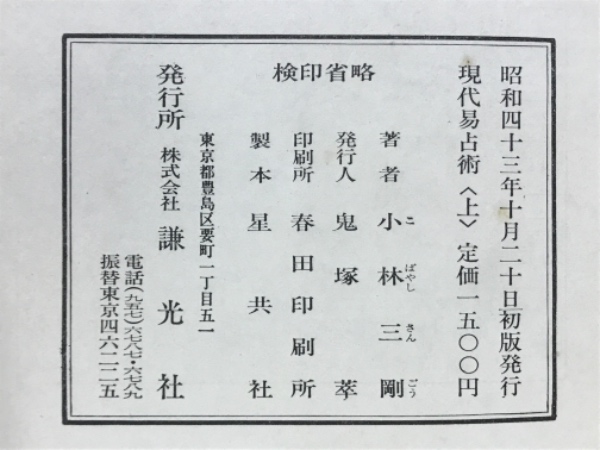 昭和四十三年十月二十日初版発行
現代易占術〈上〉定価一五〇〇円
検印省略
著者 小林三剛
こ ばやし さん ごう
発行人 鬼塚 莩
印刷所 春田印刷所
製本 星共社
東京都豊島区要町一丁目五一
発行所 株式会社 謙光社
電話(九五七)六七八七・六七八九
振替東京四六二二五